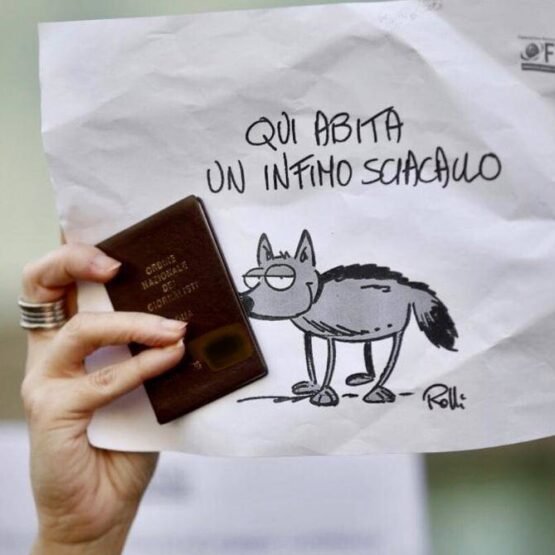 QUI ABITA
UN INFIMO SCIACALLO
ORDINE
NAZIONALE
DEI
GIORNALISTI
Rolli